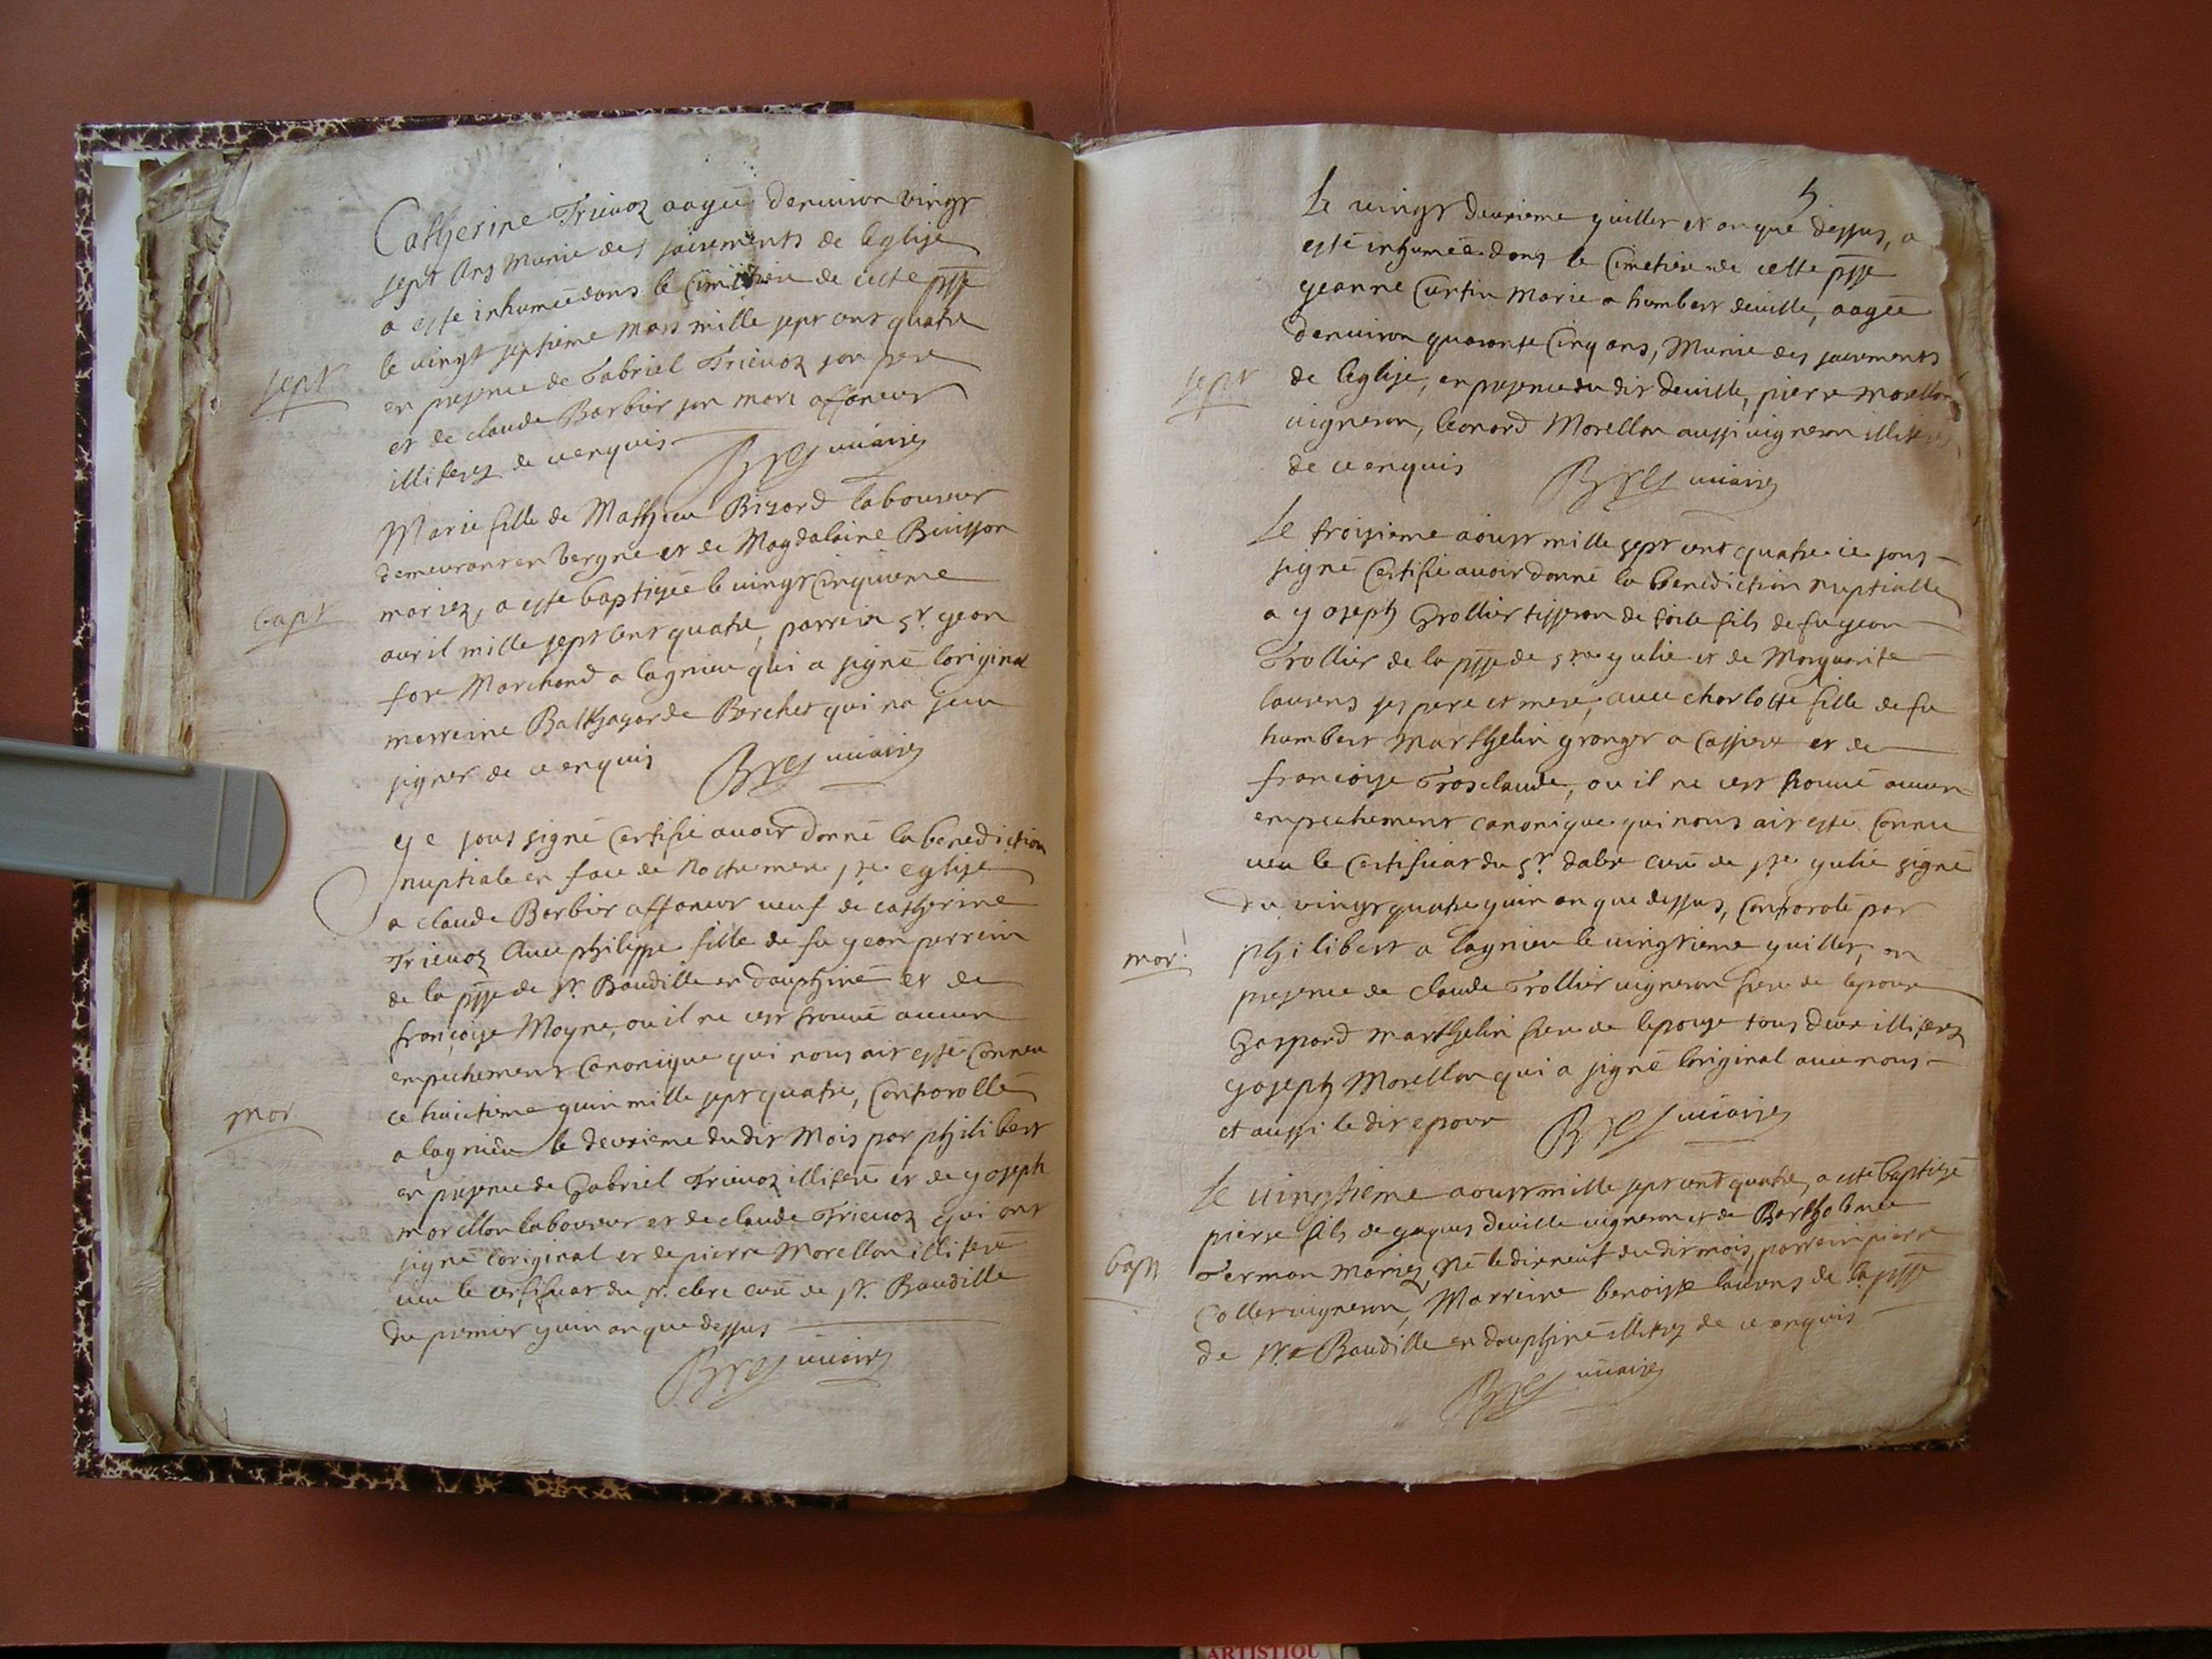 Catherine Trieuoz aagée denuiron vingt
sept ans munie des sacrements de leglise
a esté inhumée dans le Cimitiere de cette psse
le vingt septieme mars mille sept cent quatre
sept
en presence de Gabriel Trieuoz son pere
et de claude Barbier son mari affaneur
illiterez de ce enquis
Bres vicaire
Marie fille de Mathieu Bizard laboureur
demeurant en bergne et de Magdalaine Buisson
mariez, a esté baptisée le vingt Cinquieme
bapt
auril mille sept cent quatre, parrein sr. gean
fore Marchand a lagnieu qui a signé loriginal
marreine Balthazarde Berchet qui na sceu
signer de ce enquis
Bres vicaire
ye sous signé Certifie auoir donné la benediction
nuptiale en face de Nostre mere ste eglise
a claude Barbier affaneur ueuf de catherine
Trieuoz auec philippe fille de fu gean perrein
de la psse de st. Baudille en dauphiné et de
françoise Moyne, ou il ne cest trouué aucun
enpechement Canonique qui nous ait esté Conneu
ce huictieme yuin mille sept quatre, Controrollé
mar
a lagnieu le deuxieme dudit mois par philibert
en presence de Gabriel Trieuoz illiteré et de yoseph
morellon laboureur et de claude Trieuoz qui ont
signé loriginal et de pierre Morellon illiteré
ueu le certificat du sr. clerc curé de st. Baudille
du premier yuin an que dessus
Bres vicaire
5
Le vingt deuxieme yuillet et an que dessus, a
esté inhumée dans le Cimetiere de cette psse
geanne Curtin Marie a humbert deuille, aagée
denuiron quarante Cinq ans, Munie des sacrements
sept
de leglise, en presence du dit deuille, pierre Morellon
uigneron, leonard Morellon aussi uigneron
de ce enquis
Bres vicaire
Le troisieme aoust mille sept cent quatre ie sous
signé Certifie auoir donné la benediction nuptialle
a yoseph Trollier tisseran de toile fils de fu gean
Trollier de la psse de ste yulie et de Marguarite
laurens ses pere et mere, auec charlotte fille de fu
humbert Marthelin granger a et de
françoise Grosclaude, ou il ne cest trouué aucun
enpechement canonique qui nous ait esté Connu
ueu le Certificat du sr. curé de ste yulie signé
du vingt quatre yuin an que dessus, Controrolé par
mar.
philibert a lagnieu le vingtieme yuillet, en
presence de claude Trollier uigneron frere de lepoux
Gaspard Marthelin frere de lepouse tous deux illiterez
yoseph Morellon qui a signé loriginal auec nous
et aussi le dit epoux
Bres vicaire
Le vingtieme aoust mille sept cent quatre, a esté baptisé
pierre fils de yaques deuille uigneron et de Bartholomée
bapt
Germon mariez, né le dixneuf du dit mois, parrein pierre
Collet uigneron, Marreine benoiste laurens de la psse
de st. Baudille en dauphiné illiterez de ce enquis
Bres vicaire
ARTISTIQU